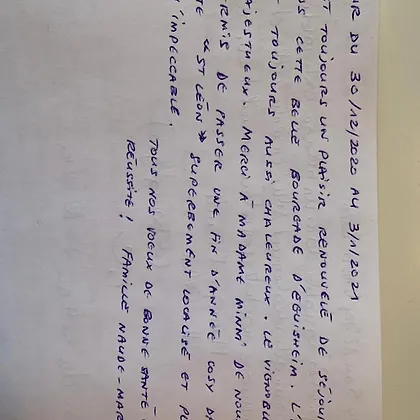 UR DU 30/12/2020 AU 3/1/2021
T TOUJOURS UN PLAISIR RENOUVELÉ DE SÉJO
S CETTE BELLE BOURGADE D'EGUISHEIM. L'
TOUJOURS AUSSI CHALEUREUX. LE VIGNOBL
AJESTUEUX. MERCI À MADAME MINNI DE NOU
RMIS DE PASSER UNE FIN D'ANNÉE COSY D
TE « ST LÉON » SUPERBEMENT LOCALISÉ ET PE
IMPECCABLE.
TOUS NOS VOEUX DE BONNE SANTÉ
RÉUSSITE ! FAMILLE NAUDE-MA